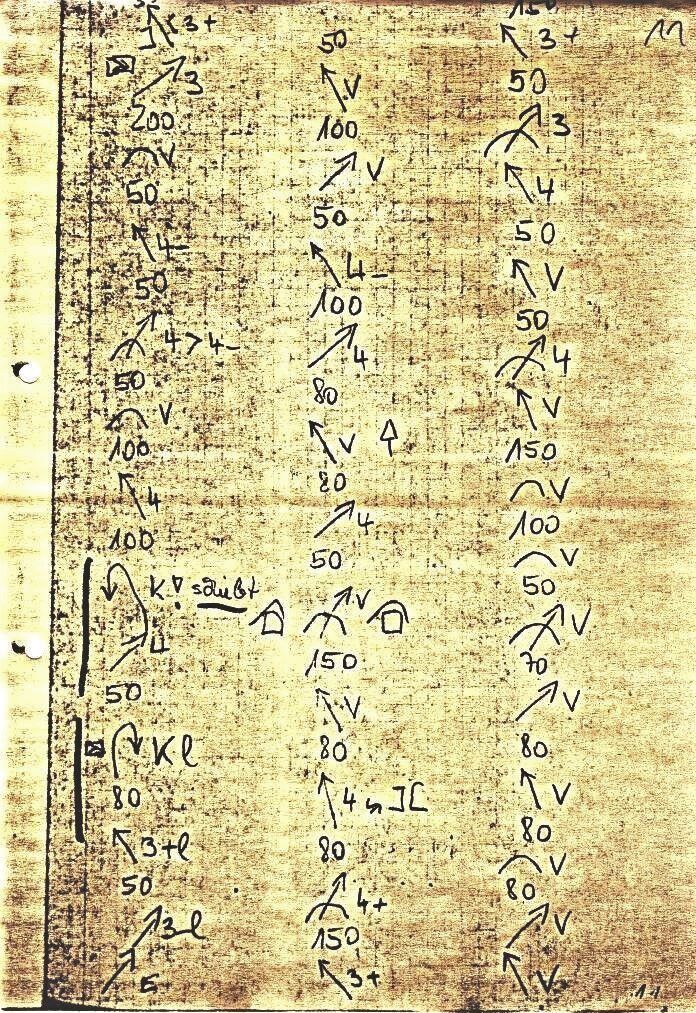 3+
3
200
V
50
4-
50
4>4-
50
V
100
4
100
K!
4
50
Kl
80
3+l
50
3-l
5
50
V
100
V
50
4-
100
4
80
V
80
4
50
V
150
V
80
4
80
4+
150
3+
150
3+
50
3
4
50
V
50
4
V
150
V
100
V
50
V
70
V
80
V
80
V
80
V
V
11
11